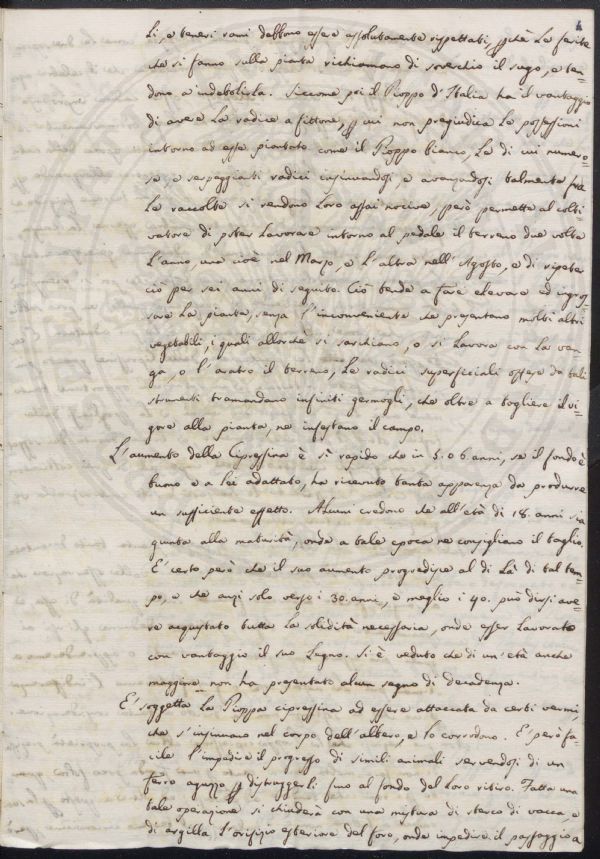 4
li, e teneri rami debbono essere assolutamente rispettati, pchè le ferite
che si fanno sulla pianta richiamano di soverchio il sugo, e ten=
dono a indebolirla. Siccome poi il Pioppo d'Italia ha il vantaggio
di avere la radice a fittone, p cui non pregiudica le possessioni
intorno ad esse piantato come il Pioppo bianco, le di cui numero=
se, e serpeggianti radici insinuandosi, e avanzandosi talmente fra
le raccolte si rendono loro assai nocive, però permette al colti=
vatore di poter lavorare intorno al pedale il terreno due volte
l'anno, una cioè nel Marzo, e l'altra nell'Agosto, e di ripeter
ciò per sei anni di seguito. Ciò tende a fare elevare ed ingros=
sare la pianta, senza l'inconveniente che presentano molti altri
vegetabili, i quali allorchè si sarchiano, o si lavora con la van=
ga, o l'aratro il terreno, le radici superficiali offese da tali
strumenti tramandano infiniti germogli, che oltre a togliere il vi=
gore alla pianta, ne infestano il campo.
L'aumento della Cipressina è sì rapido che in 5. o 6 anni, se il fondo è
buono e a lei adattato, ha ricevuto tanta apparenza da produrre
un sufficiente effetto. Alcuni credono che all'età di 18. anni sia
giunta alla maturità, onde a tale epoca ne consigliano il taglio.
E' certo però che il suo aumento progredisce al di là di tal tem=
po, e che anzi solo verso i 30. anni, e meglio i 40. può dirsi ave=
re acquistato tutta la solidità necessaria, onde esser lavorato
con vantaggio il suo legno. Si è veduto che di un'età anche
maggiore non ha presentato alcun segno di decadenza.
E' soggetta la Pioppa cipressina ad essere attaccata da certi vermi,
che s'insinuano nel corpo dell'albero, e lo corrodono. E' però fa=
cile l'impedire il progresso di simili animali servendosi di un
ferro aguzzo p distruggerli fino al fondo del loro ritiro. Fatta una
tale operazione si chiuderà con una mistura di sterco di vacca, e
di argilla l'orifizio esteriore del foro, onde impedire il passaggio a